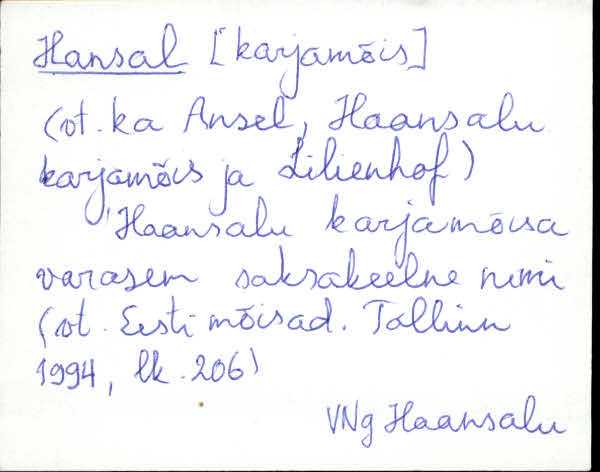 Hansal [karjamõis]
(vt. ka Ansel, Haansalu
karjamõis ja Lilienhof)
Haansalu karjamõisa
varasem saksakeelne nimi
(vt. Eesti mõisad. Tallinn
1994, lk. 206)
VNg Haansalu